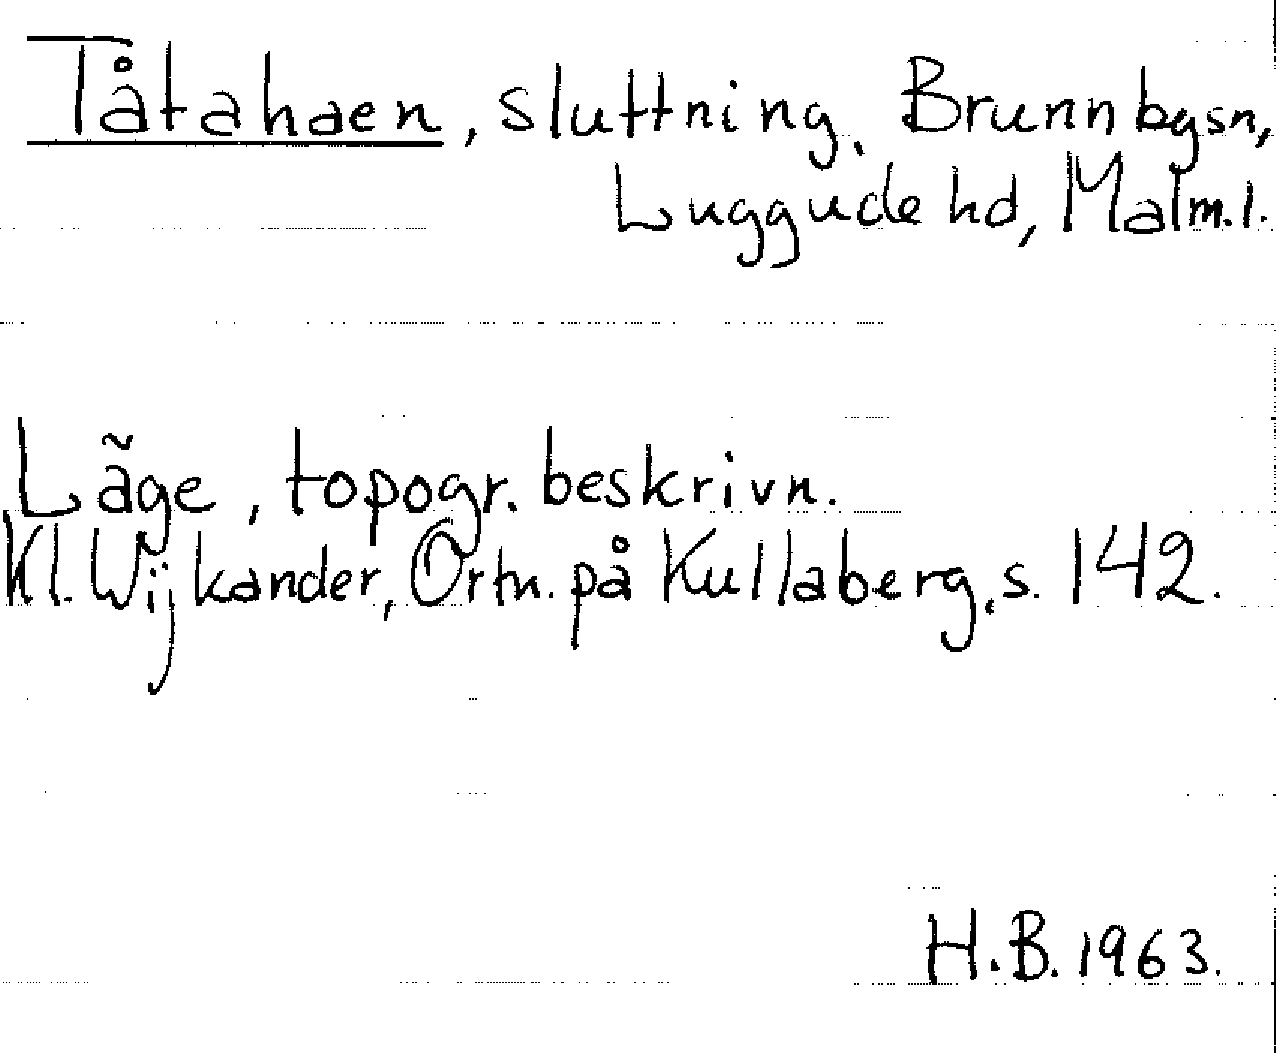 Tåtahaen, sluttning. Brunnbysn,
Luggude hd, Malm.l.
Läge, topogr. beskrivn.
Kl. Wijkander, Ortn. på Kullaberg, s. 142.
H.B. 1963.